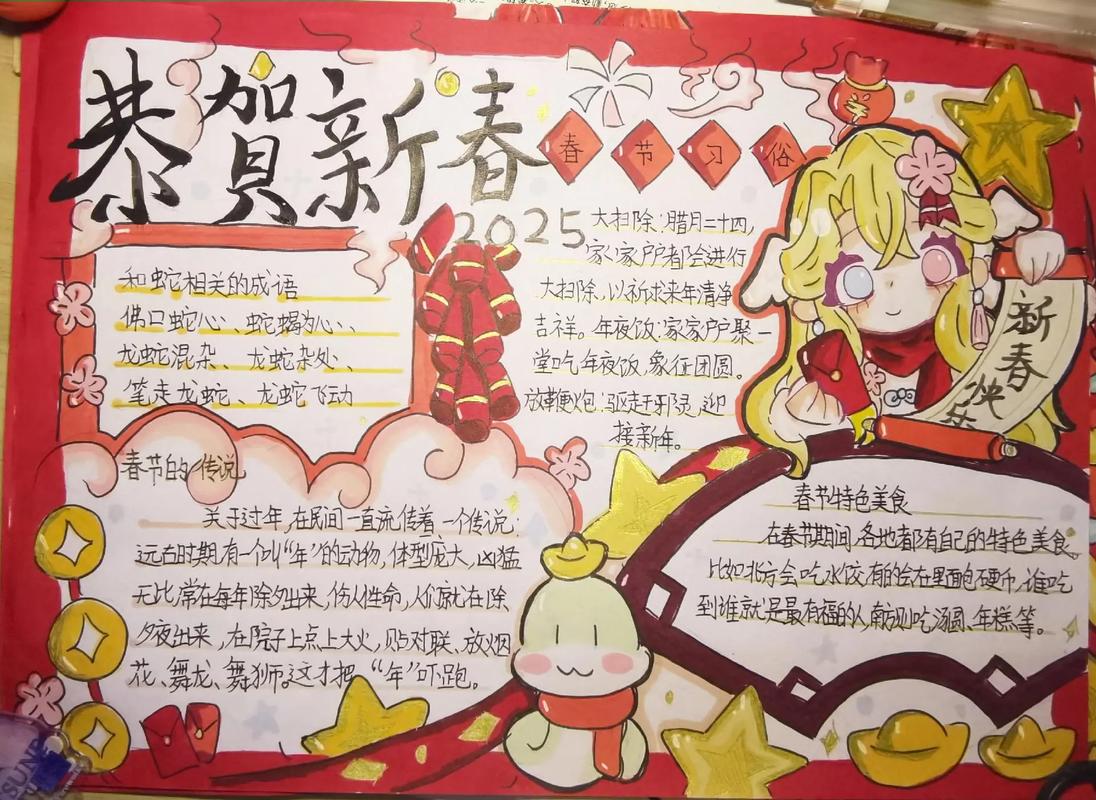 恭贺新春
2025
春节习俗
大扫除:腊月二十四,
家家户户都会进行
大扫除,以祈求来年清净
吉祥。年夜饭:家家户户聚一
堂吃年夜饭,象征团圆。
放鞭炮:驱走干邪灵,迎
接新年。
新春快乐
和蛇相关的成语
佛口蛇心、蛇蝎为心、
龙蛇混杂、龙蛇杂处、
笔走龙蛇、龙蛇飞动
春节的传说
关于过年,在民间一直流传着一个传说:
远古时期,有一个叫“年”的动物,体型庞大,凶猛
无比,常在每年除夕出来,伤人性命,人们就在除
夕夜出来,在院子上点上大火,贴对联、放烟
花、舞龙、舞狮。这才把“年”吓跑。
春节特色美食
在春节期间,各地都有自己的特色美食,
比如北方会吃水饺,有的会在里面包硬币,谁吃
到谁就是最有福的人,南方则吃汤圆、年糕等。
SUN